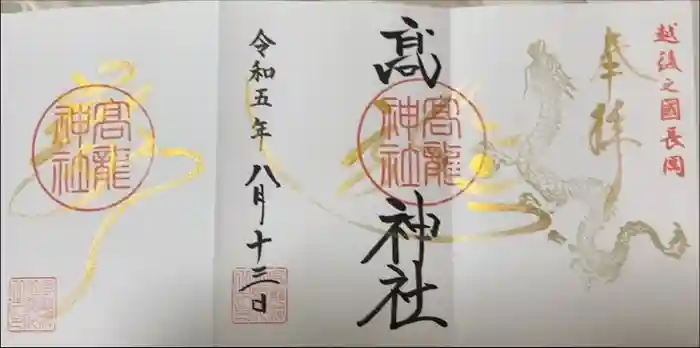 越後之國長岡
奉拝
髙
神社
髙龍
神社
令和五年
八月十三日
髙龍
神社